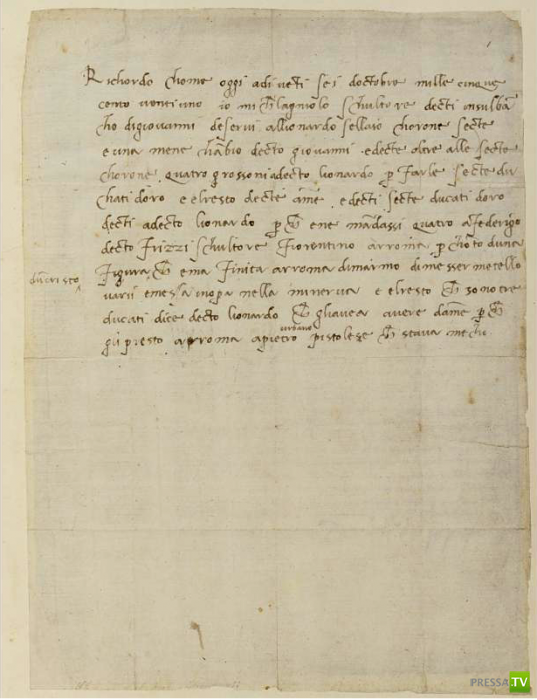 Richordo chome oggi adi venti sei doctobre mille cinque
cento venti uno io michelagniolo schultore decti in sul bā
cho di giovanni
allionardo sellaio chorone secte
e una mene chābio decto giovanni e decte oltre alle secte
chorone quatro grossoni a decto lionardo p farle secte du
chati doro e el resto decte a me e decti secte ducati doro
decti a decto lionardo p ch e ne mādassi quatro a federigo
decto frizzi schultore fiorentino a rroma p chōto duna
figura ch e m a finita a rroma di marmo di messer metello
dun cristo
varii e messa in opa nella minerva e el resto ch sono tre
ducati dice decto lionardo ch gli avea avere da me p ch
gli presto a rroma a pietro urbano pistolese ch stava mecho
PRESSA.TV